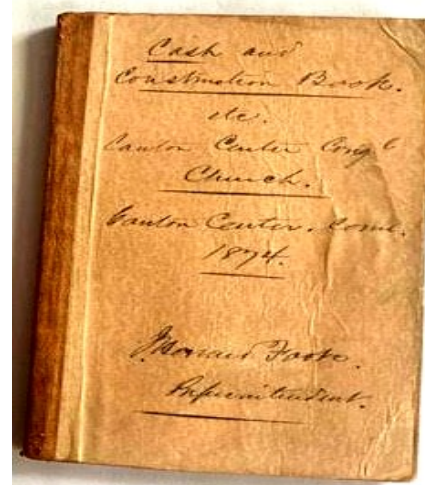 Cash and
Construction Book.
etc.
Canton Center Cong'l
Church.
Canton Center. Conn.
1874.
J. Howard Foote.
Superintendent.